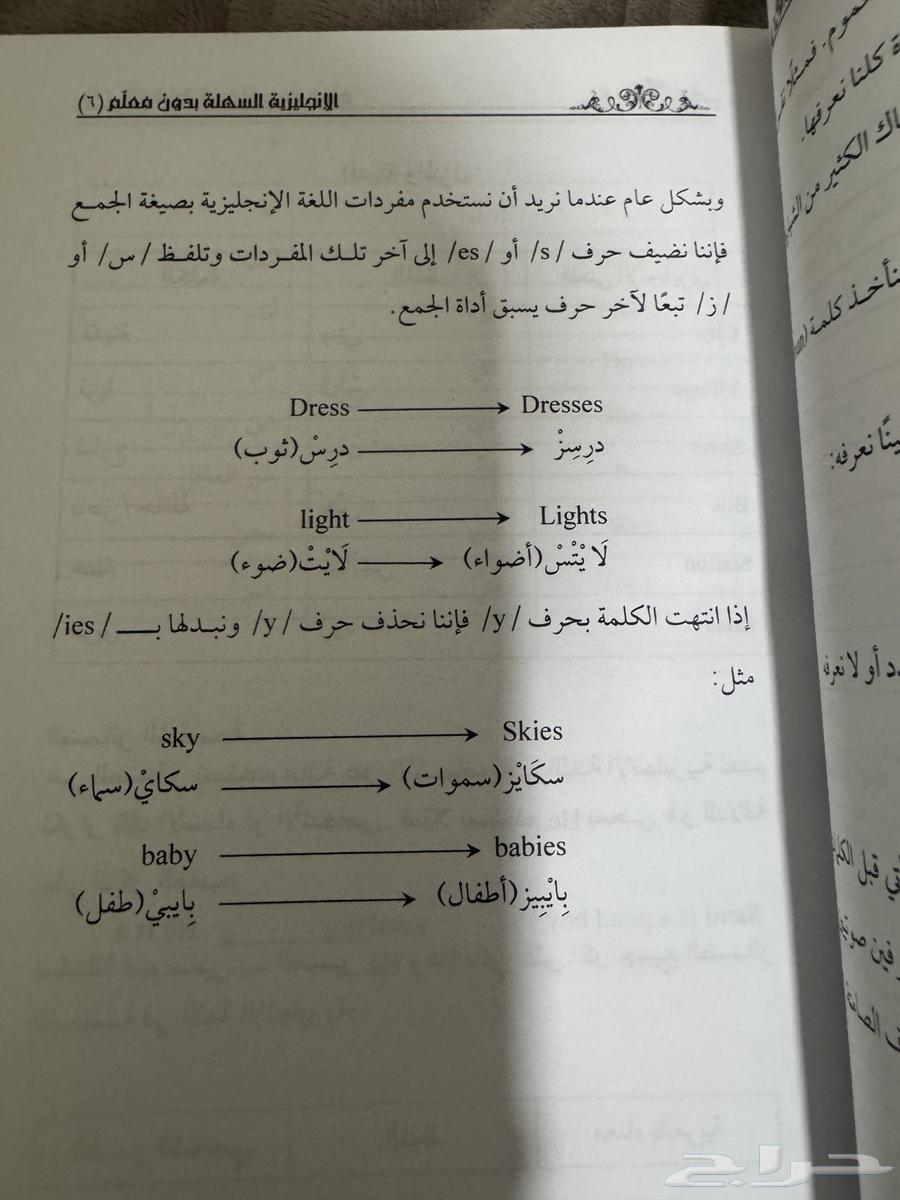 الإنجليزية السهلة بدون معلّم (٦)
وبشكل عام عندما نريد أن نستخدم مفردات اللغة الإنجليزية بصيغة الجمع
فإننا نضيف حرف /s/ أو /es/ إلى آخر تلك المفردات وتلفظ /س/ أو
/ز/ تبعًا لآخر حرف يسبق أداة الجمع.
Dress ⟶ Dresses
درِسْ(ثوب) ⟶ درِسِزْ
light ⟶ Lights
لَايْتْ(ضوء) ⟶ لَايْتْسْ(أضواء)
إذا انتهت الكلمة بحرف /y/ فإننا نحذف حرف /y/ ونبدلها بـ /ies/
مثل:
sky ⟶ Skies
سكايْ(سماء) ⟶ سكَايْز(سموات)
baby ⟶ babies
بِايبيْ(طفل) ⟶ بِايْبِيز(أطفال)
كلنا نعرفها.
الكثير من
كلمة
نعرفه:
أو لا نعرفه
قبل
حراج